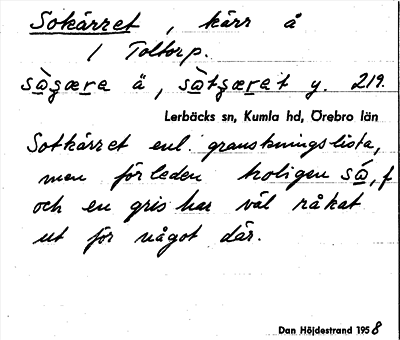 Sokärret, kärr å
/ Toltorp.
sɷ̀ʒæra ä, sɷ̀tʒærat y. 219.
Lerbäcks sn, Kumla hd, Örebro län
Sotkärret enl. granskningslista,
men förleden troligen sɷ́, f
och en gris har väl råkat
ut för något där.
Dan Höjdestrand 1958